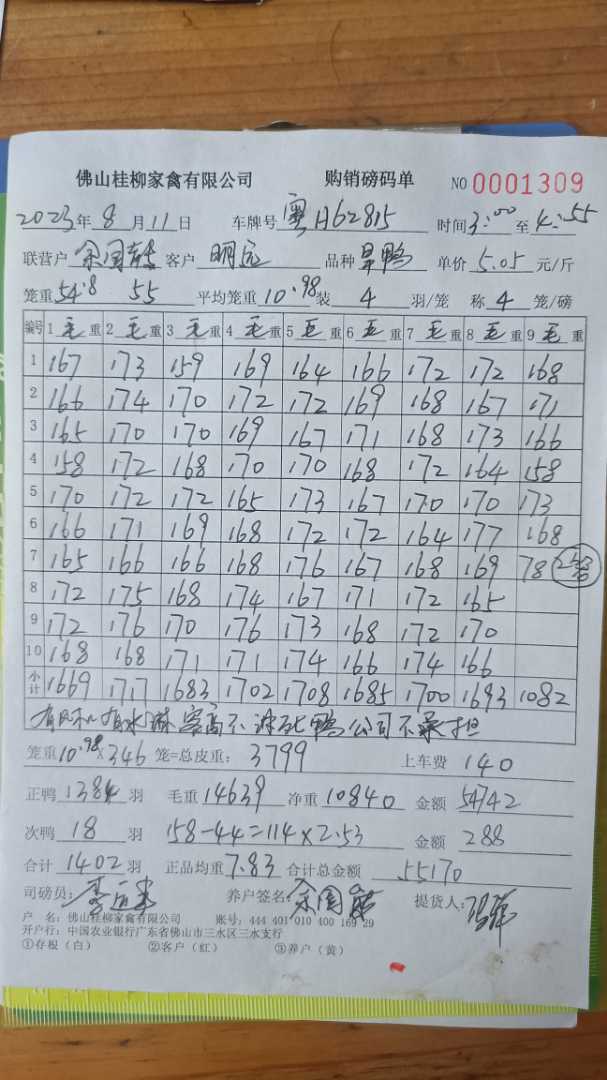 佛山桂柳家禽有限公司 购销磅码单 NO 0001309
2023年 8月11日 车牌号 粤A62815 时间3:00至4:55
联营户 余国 客户 明远 品种 旱鸭 单价 5.05 元/斤
笼重54.8 55 平均笼重10.98装 4 羽/笼 称 4 笼/磅
编号 1毛重 2毛重 3毛重 4毛重 5毛重 6毛重 7毛重 8毛重 9毛重
1 167 173 159 169 164 166 172 172 168
2 166 174 170 172 172 169 168 167 171
3 165 170 170 169 167 171 168 173 166
4 158 172 168 170 170 168 172 164 158
5 170 172 172 165 173 167 170 170 173
6 166 171 169 168 172 172 164 177 168
7 165 166 166 168 176 167 168 169 78 2笼
8 172 175 168 174 167 171 172 165
9 172 176 170 176 173 168 172 170
10 168 168 171 171 174 166 174 166
小计 1669 1717 1683 1702 1708 1685 1700 1693 1082
有风机有水淋客高不淋死鸭公司不承担
笼重10.98×346笼=总皮重: 3799 上车费 140
正鸭 1384 羽 毛重14639 净重10840 金额 54742
次鸭 18 羽 158-44=114×2.53 金额 288
合计 1402羽 正品均重7.83 合计总金额 55170
司磅员: 养户签名: 余国 提货人:
户 名: 佛山桂柳家禽有限公司 账号: 444 401 010 400 169 29
开户行: 中国农业银行广东省佛山市三水区三水支行
①存根(白) ②客户(红) ③养户(黄)